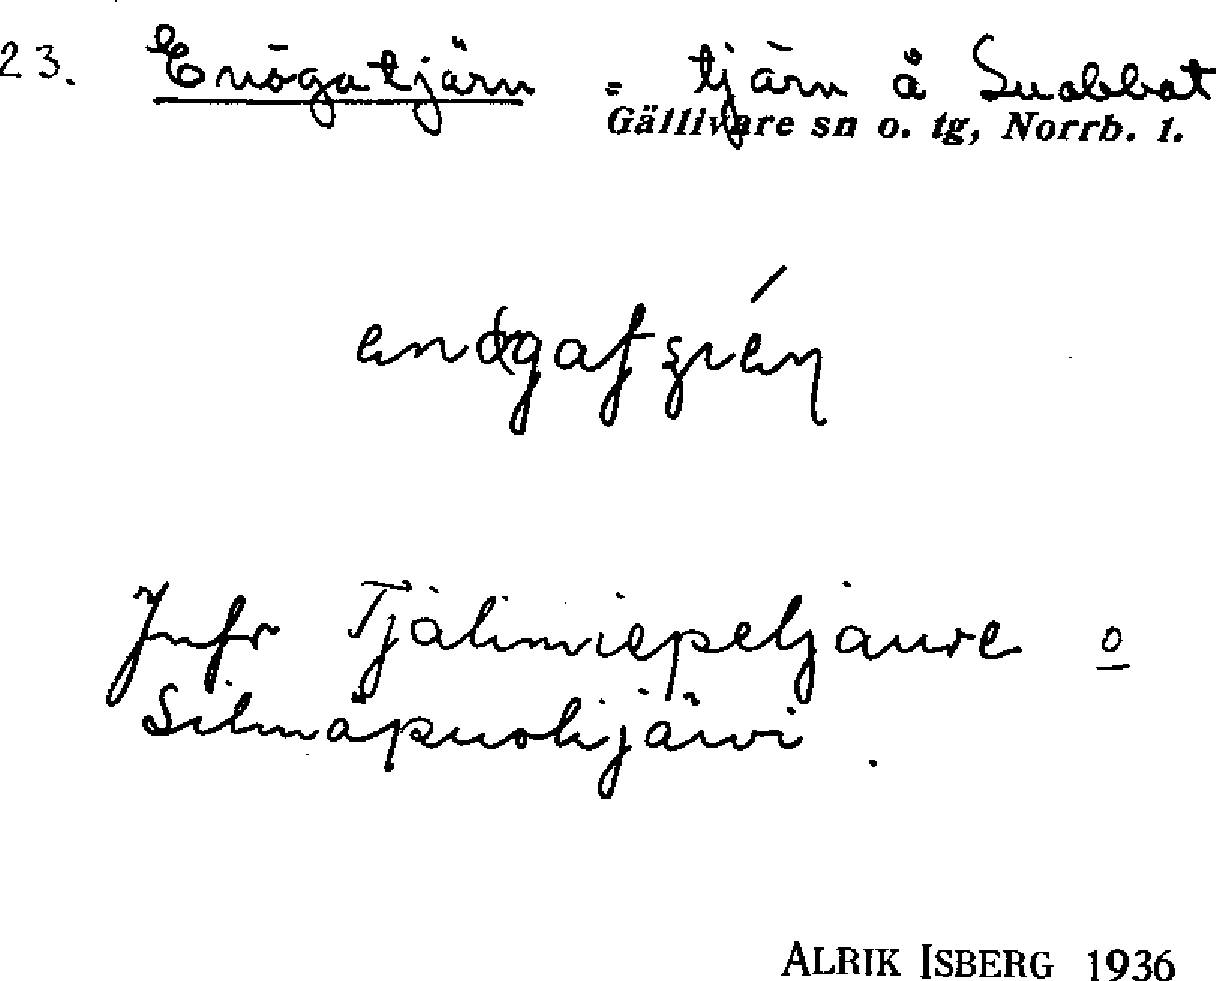 23. Enögatjärn = tjärn å Suobbat
Gällivare sn o. tg, Norrb. l.
Jnfr Tjälimiepeljaure o
Silmäpuolijärvi.
ALRIK ISBERG 1936